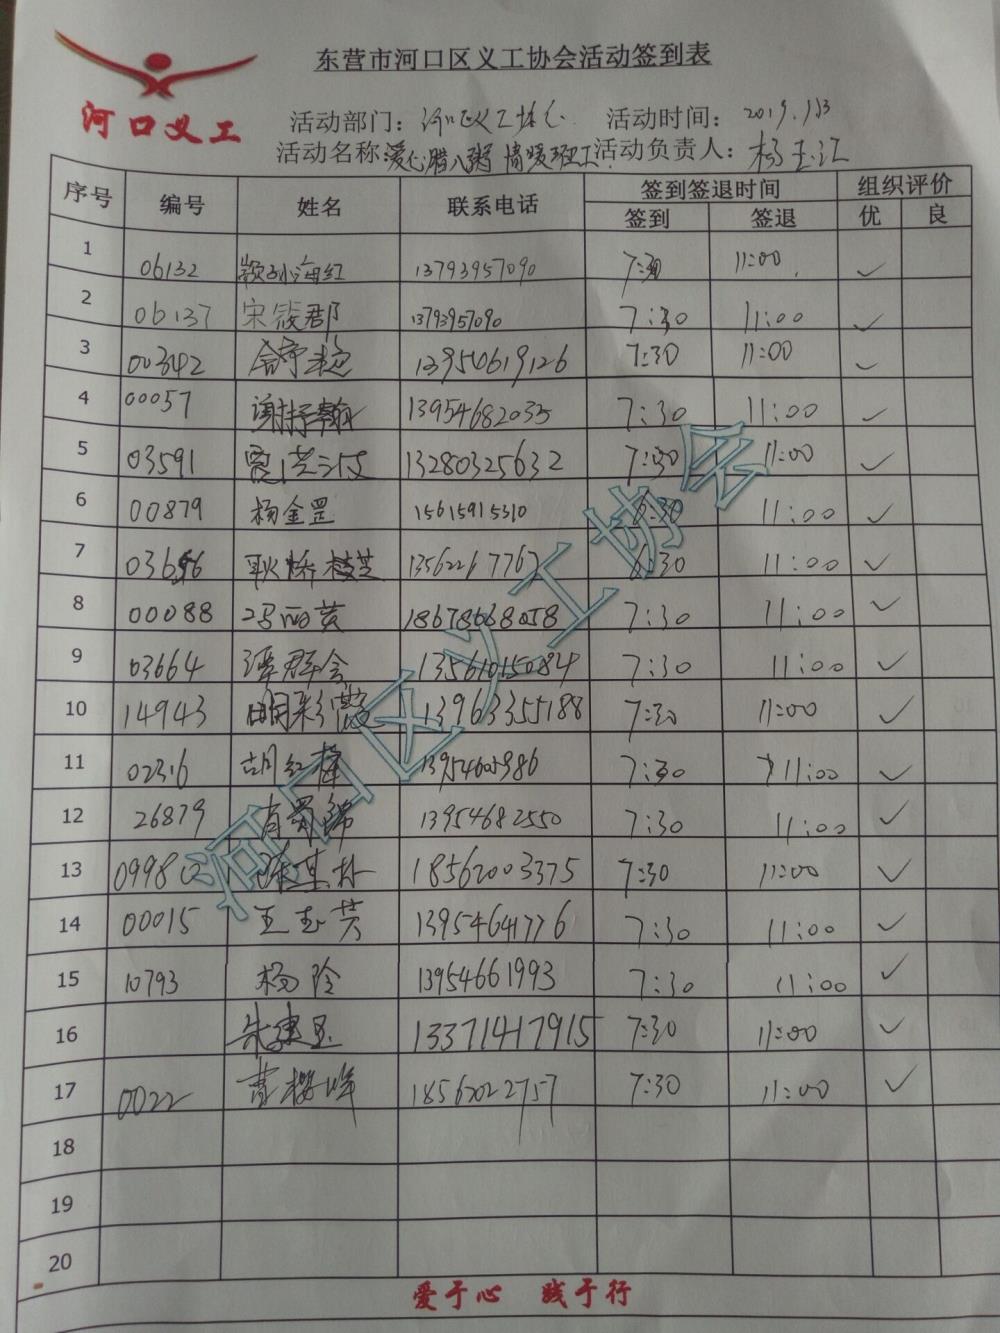 东营市河口区义工协会活动签到表
河口义工
活动部门： 活动时间：2019.1.13
活动名称：爱心腊八粥 情暖环卫工 活动负责人：杨玉江
序号 编号 姓名 联系电话 签到签退时间 组织评价
签到 签退 优 良
1 06132 颛孙海红 13793957090 7:30 11:00 ✓
2 06137 宋筱郡 13793957090 7:30 11:00 ✓
3 00342 13950619126 7:30 11:00 ✓
4 00057 谢抒翰 13954682035 7:30 11:00 ✓
5 03591 13280325632 7:30 11:00 ✓
6 00879 杨金罡 15615915310 6:30 11:00 ✓
7 耿娇枝芝 13562267767 6:30 11:00 ✓
8 00088 冯丽英 18678668058 7:30 11:00 ✓
9 03664 谭群会 13561015084 7:30 11:00 ✓
10 14943 明彩霞 13963355188 7:30 11:00 ✓
11 02316 胡红梅 13954605986 7:30 11:00 ✓
12 26879 肖蜀锦 13954682550 7:30 11:00 ✓
13 陈其林 18562003375 7:30 11:00 ✓
14 00015 王玉芳 13954641776 7:30 11:00 ✓
15 10793 杨玲 13954661993 7:30 11:00 ✓
16 朱建玉 13371417915 7:30 11:00 ✓
17 0022 曹樱峰 18562022757 7:30 11:00 ✓
18
19
20
河口区义工协会
爱于心 践于行